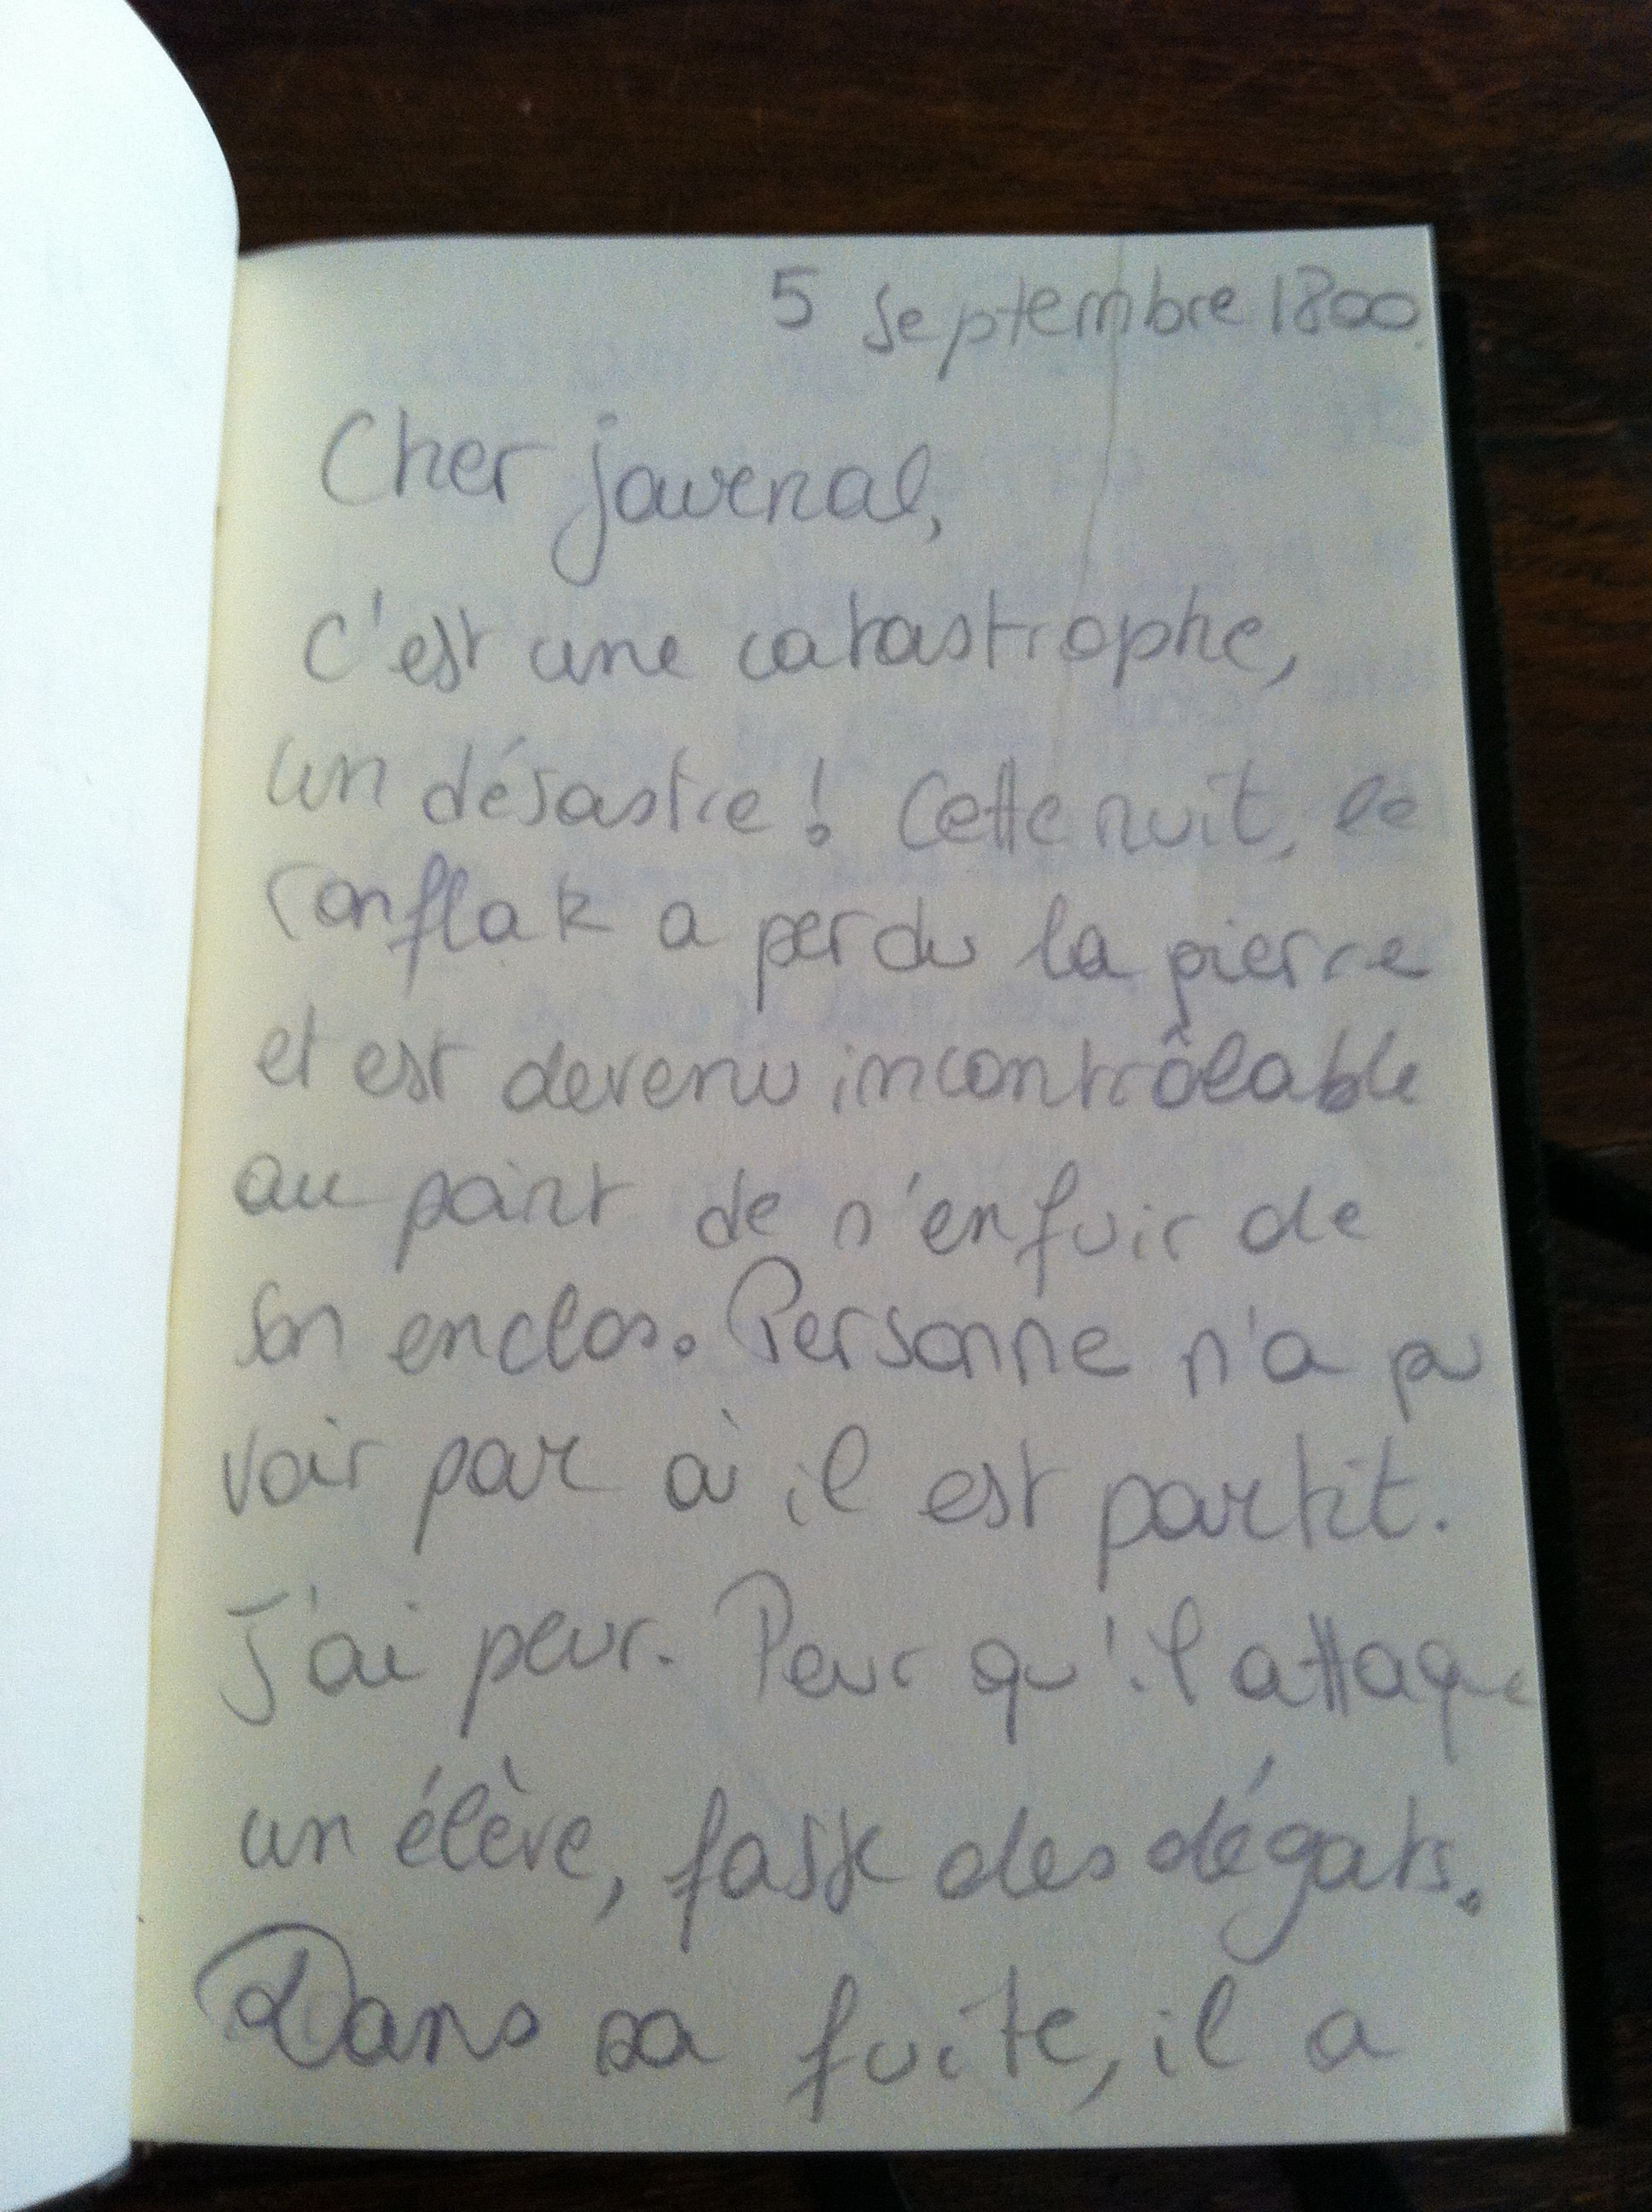 5 Septembre 1800.
Cher journal,
C'est une catastrophe,
un désastre ! Cette nuit, le
ronflak a perdu la pierre
et est devenu incontrôlable
au point de n'enfuir de
son enclos. Personne n'a pu
voir par où il est partit.
J'ai peur. Peur qu'il attaque
un élève, fasse des dégats.
Dans sa fuite, il a